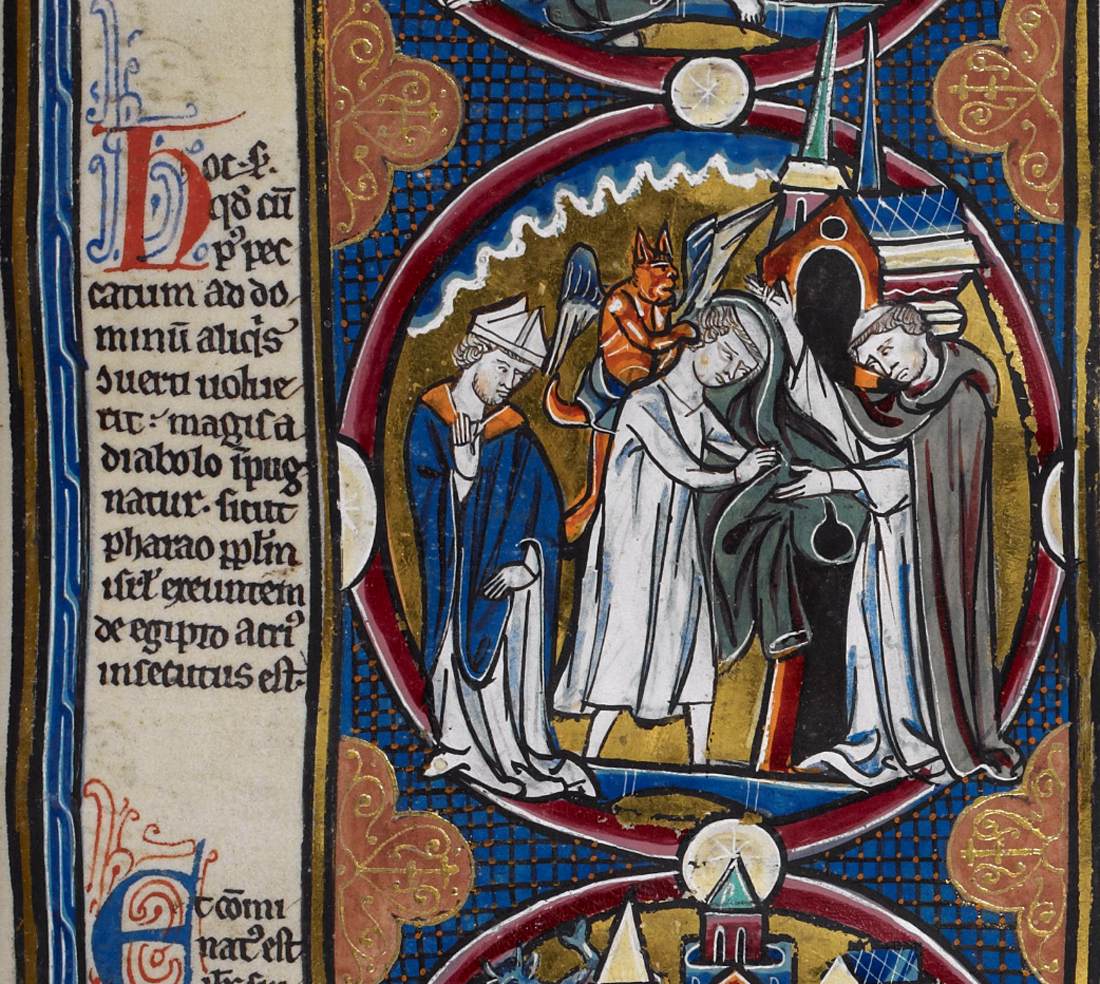 Hoc .sͥ.
qð cū
pꝰ pec
catum ad do
minū aliqͥs
ꝯuerti uolue
rit: magis a
diabolo īpug
natur. sicut
pharao pplm̄
isrl̄ exeuntem
de egipto acriꝰ
insecutus est.
Et cōmi
natꝰ est